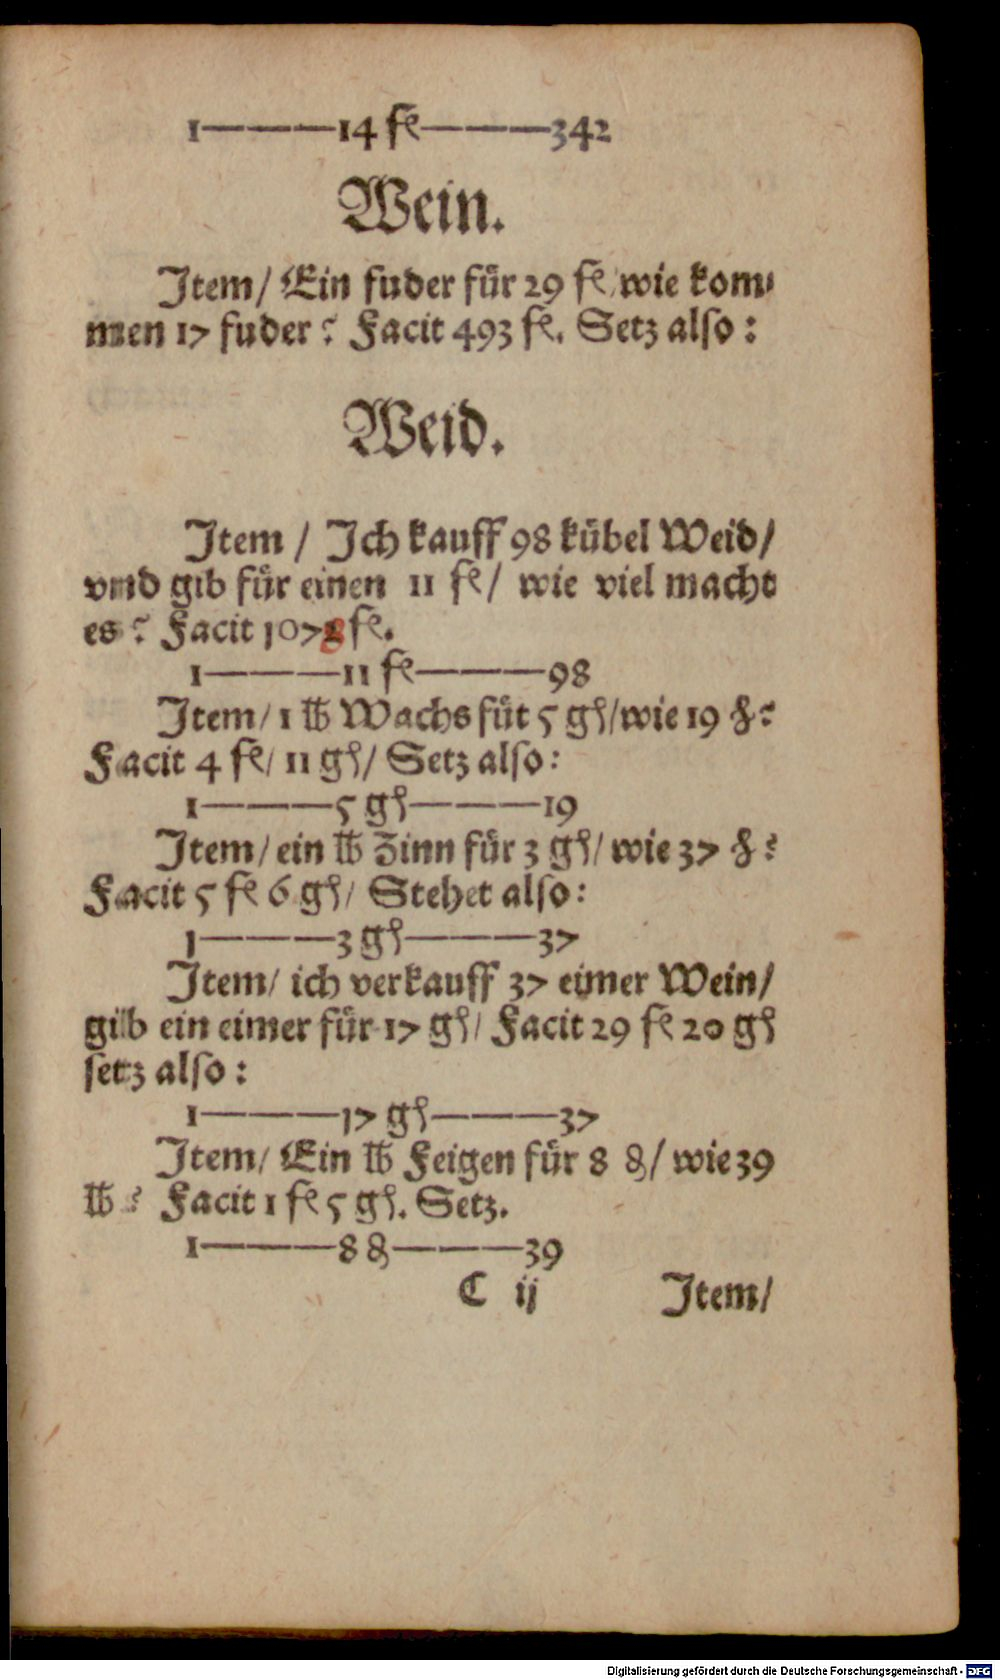 1———14 fl———342
Wein.
Item/ Ein fuder für 29 fl/ wie kom⸗
men 17 fuder? Facit 493 fl. Setz also:
Weid.
Item/ Ich kauff 98 kübel Weid/
vnd gib für einen 11 fl/ wie viel macht
es? Facit 1078 fl.
1———11 fl———98
Item/ 1 ℔ Wachs füt 5 gſ/wie 19 ℔?
Facit 4 fl/ 11 gſ/ Setz also:
1———5 gſ———19
Item/ ein ℔ Zinn für 3 gſ/ wie 37 ℔?
Facit 5 fl 6 gſ/ Stehet also:
1———3 gſ———37
Item/ ich verkauff 37 eimer Wein/
gib ein eimer für 17 gſ/ Facit 29 fl 20 gſ
setz also:
1———17 gſ———37
Item/ Ein ℔ Feigen für 8 ₰/ wie 39
℔? Facit 1 fl 5 gſ. Setz.
1———8 ₰———39
C ij Item/
Digitalisierung gefördert durch die Deutsche Forschungsgemeinschaft - DFG